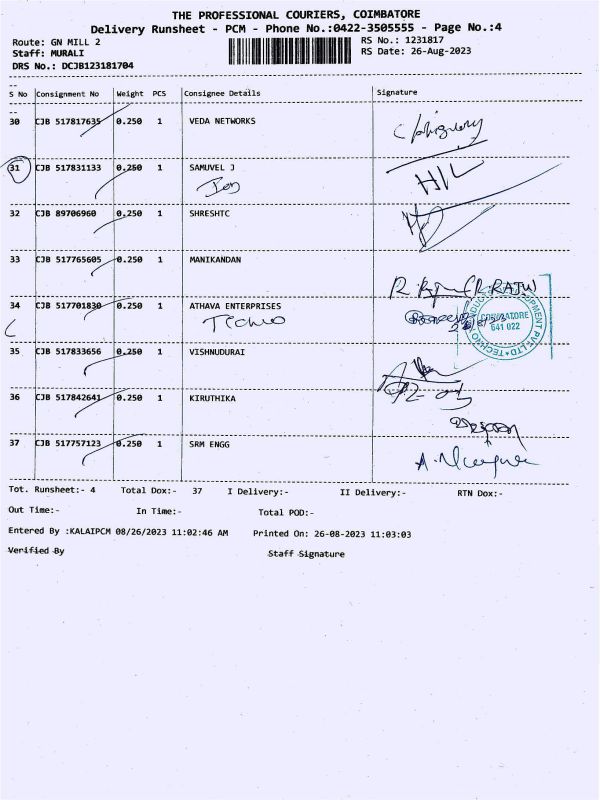 THE PROFESSIONAL COURIERS, COIMBATORE
Delivery Runsheet - PCM - Phone No.:0422-3505555 - Page No.:4
Route: GN MILL 2
RS No.: 1231817
Staff: MURALI
RS Date: 26-Aug-2023
DRS No.: DCJB123181704
S No Consignment No Weight PCS Consignee Details Signature
30 CJB 517817635 0.250 1 VEDA NETWORKS
31 CJB 517831133 0.250 1 SAMUVEL J
32 CJB 89706960 0.250 1 SHRESHTC
33 CJB 517765605 0.250 1 MANIKANDAN
34 CJB 517701830 0.250 1 ATHAVA ENTERPRISES
Techno
COIMBATORE
641 022
35 CJB 517833656 0.250 1 VISHNUDURAI
36 CJB 517842641 0.250 1 KIRUTHIKA
37 CJB 517757123 0.250 1 SRM ENGG
Tot. Runsheet:- 4 Total Dox:- 37 I Delivery:- II Delivery:- RTN Dox:-
Out Time:- In Time:- Total POD:-
Entered By :KALAIPCM 08/26/2023 11:02:46 AM Printed On: 26-08-2023 11:03:03
Verified By Staff Signature